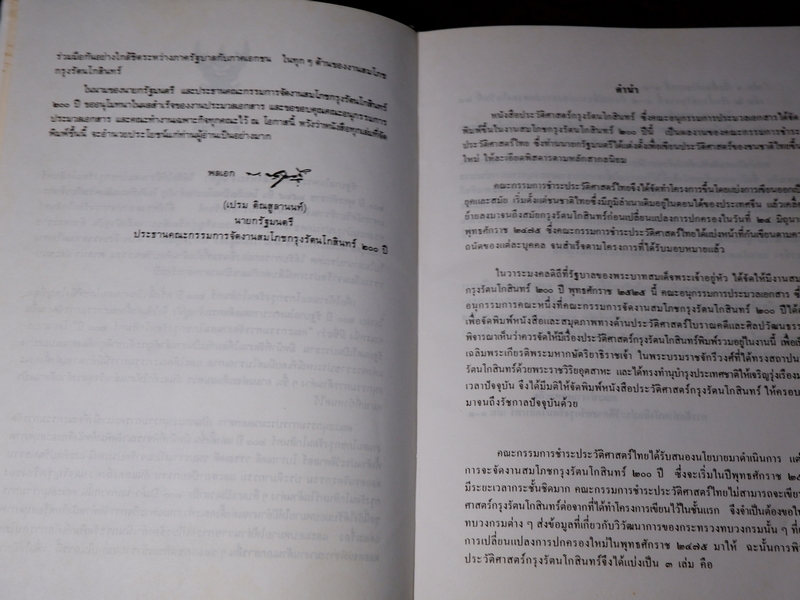 ร่วมมือกันอย่างใกล้ชิดระหว่างภาครัฐบาลกับภาคเอกชน ในทุก ๆ ด้านของงานสมโภช
กรุงรัตนโกสินทร์
ในนามของนายกรัฐมนตรี และประธานคณะกรรมการจัดงานสมโภชกรุงรัตนโกสินทร์
๒๐๐ ปี ขออนุโมทนาในผลสำเร็จของงานประมวลเอกสาร และขอขอบคุณคณะอนุกรรมการ
ประมวลเอกสาร และคณะทำงานเฉพาะกิจทุกคณะไว้ ณ โอกาสนี้ หวังว่าหนังสือทุกเล่มที่จัด
พิมพ์ขึ้นนี้ จะอำนวยประโยชน์แก่ท่านผู้อ่านเป็นอย่างมาก
พลเอก
(เปรม ติณสูลานนท์)
นายกรัฐมนตรี
ประธานคณะกรรมการจัดงานสมโภชกรุงรัตนโกสินทร์ ๒๐๐ ปี
คำนำ
หนังสือประวัติศาสตร์กรุงรัตนโกสินทร์ ซึ่งคณะอนุกรรมการประมวลเอกสารได้จัด
พิมพ์ขึ้นในงานสมโภชกรุงรัตนโกสินทร์ ๒๐๐ ปีนี้ เป็นผลงานของคณะกรรมการชำระ
ประวัติศาสตร์ไทย ซึ่งท่านนายกรัฐมนตรีได้แต่งตั้งเพื่อเขียนประวัติศาสตร์ของชนชาติไทยขึ้น
ใหม่ ให้ละเอียดพิสดารตามหลักสากลนิยม
คณะกรรมการชำระประวัติศาสตร์ไทยจึงได้จัดทำโครงการขึ้นโดยแบ่งการเขียนออกเป็น
ยุคและสมัย เริ่มตั้งแต่ชนชาติไทยซึ่งมีภูมิลำเนาเดิมอยู่ในตอนใต้ของประเทศจีน แล้วเคลื่อน
ย้ายลงมาจนถึงสมัยกรุงรัตนโกสินทร์ก่อนเปลี่ยนแปลงการปกครองในวันที่ ๒๔ มิถุนา
พุทธศักราช ๒๔๗๕ ซึ่งคณะกรรมการชำระประวัติศาสตร์ไทยได้แบ่งหน้าที่กันเขียนตามความ
ถนัดของแต่ละบุคคล จนสำเร็จตามโครงการที่ได้รับมอบหมายแล้ว
ในวาระมงคลดิถีที่รัฐบาลของพระบาทสมเด็จพระเจ้าอยู่หัว ได้จัดให้มีงานสม
กรุงรัตนโกสินทร์ ๒๐๐ ปี พุทธศักราช ๒๕๒๕ นี้ คณะอนุกรรมการประมวลเอกสาร ซึ่
อนุกรรมการคณะหนึ่งที่คณะกรรมการจัดงานสมโภชกรุงรัตนโกสินทร์ ๒๐๐ ปีได้
เพื่อจัดพิมพ์หนังสือและสมุดภาพทางด้านประวัติศาสตร์โบราณคดีและศิลปวัฒนธรร
พิจารณาเห็นว่าควรจัดให้มีเรื่องประวัติศาสตร์กรุงรัตนโกสินทร์พิมพ์รวมอยู่ในงานนี้ เพื่อเ
เฉลิมพระเกียรติพระมหากษัตริยาธิราชเจ้า ในพระบรมราชจักรีวงศ์ที่ได้ทรงสถาปน
รัตนโกสินทร์ด้วยพระราชวิริยอุตสาหะ และได้ทรงทำนุบำรุงประเทศชาติให้เจริญรุ่งเรืองม
เวลาปัจจุบัน จึงได้มีมติให้จัดพิมพ์หนังสือประวัติศาสตร์กรุงรัตนโกสินทร์ ให้ครอบ
มาจนถึงรัชกาลปัจจุบันด้วย
คณะกรรมการชำระประวัติศาสตร์ไทยได้รับสนองนโยบายมาดำเนินการ แต่
การจะจัดงานสมโภชกรุงรัตนโกสินทร์ ๒๐๐ ปี ซึ่งจะเริ่มในปีพุทธศักราช ๒๕
มีระยะเวลากระชั้นชิดมาก คณะกรรมการชำระประวัติศาสตร์ไทยไม่สามารถจะเขีย
ศาสตร์กรุงรัตนโกสินทร์ต่อจากที่ได้ทำโครงการเขียนไว้ในชั้นแรก จึงจำเป็นต้องขอให้
ทบวงกรมต่าง ๆ ส่งข้อมูลที่เกี่ยวกับวิวัฒนาการของกระทรวงทบวงกรมนั้น ๆ ที่
การเปลี่ยนแปลงการปกครองใหม่ในพุทธศักราช ๒๔๗๕ มาให้ ฉะนั้นการพิ
ประวัติศาสตร์กรุงรัตนโกสินทร์จึงได้แบ่งเป็น ๓ เล่ม คือ